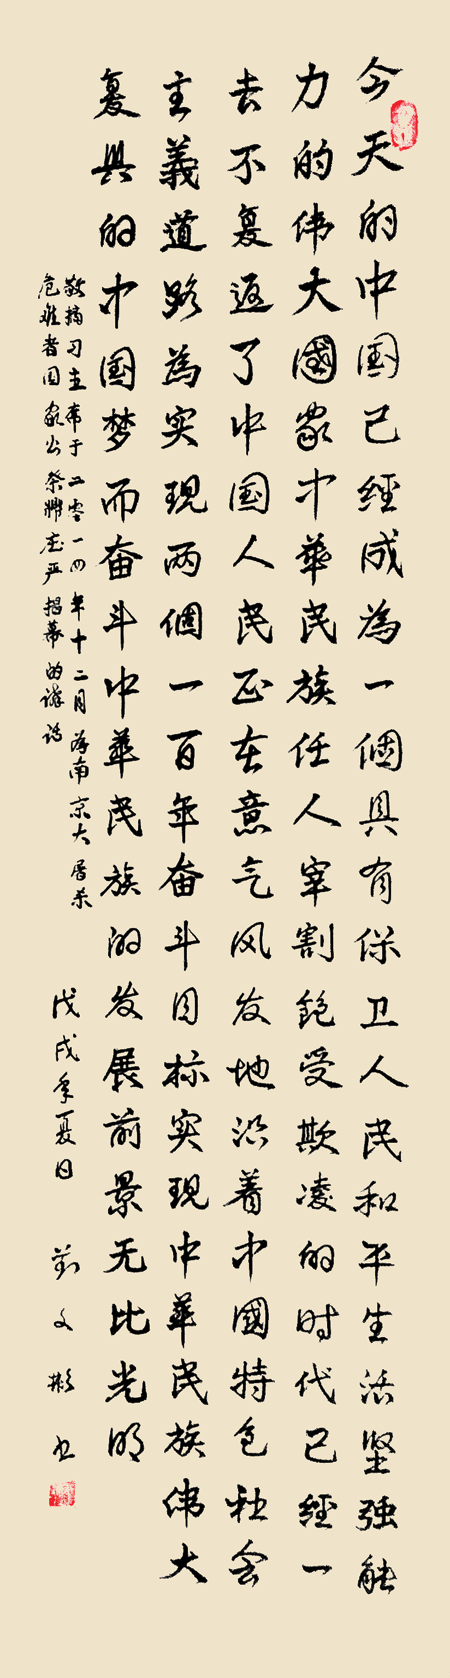 今天的中国已經成為一個具有保卫人民和平生活坚强能
力的伟大國家中華民族任人宰割飽受欺凌的时代已經一
去不复返了中国人民正在意气风发地沿着中國特色社会
主義道路為实现两個一百年奋斗目标实现中華民族伟大
复兴的中国梦而奋斗中華民族的发展前景无比光明
敬摘习主席于二零一四年十二月为南京大屠杀
危难者国家公祭典庄严揭幕的讲话
戊戌年夏日 劉文彬书